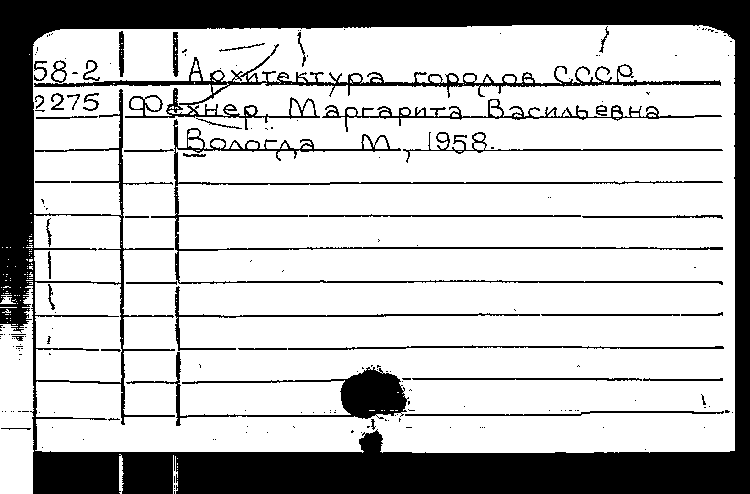 58-2 Архитектура городов СССР.
2275 Фехнер, Маргарита Васильевна.
Вологда. М., 1958.